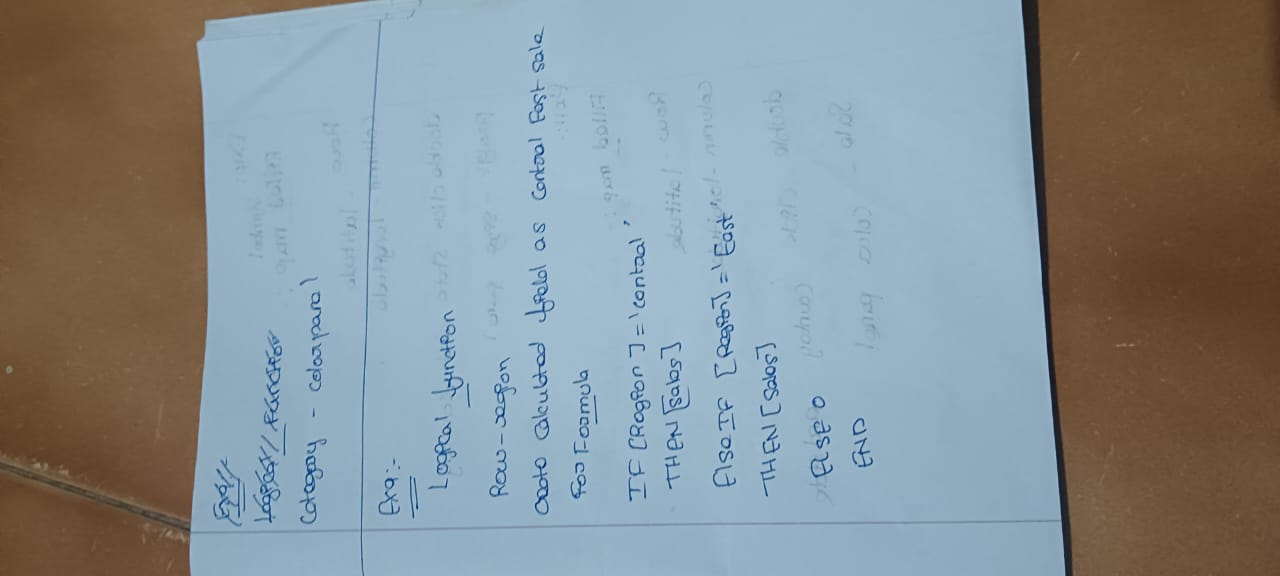 Category - color panel
Exa:-
Logical function
Row - region
create calculated field as central East sale
For Formula
IF [Region] = 'central'
THEN [Sales]
Else IF [Region] = 'East
THEN [Sales]
ELSE 0
END